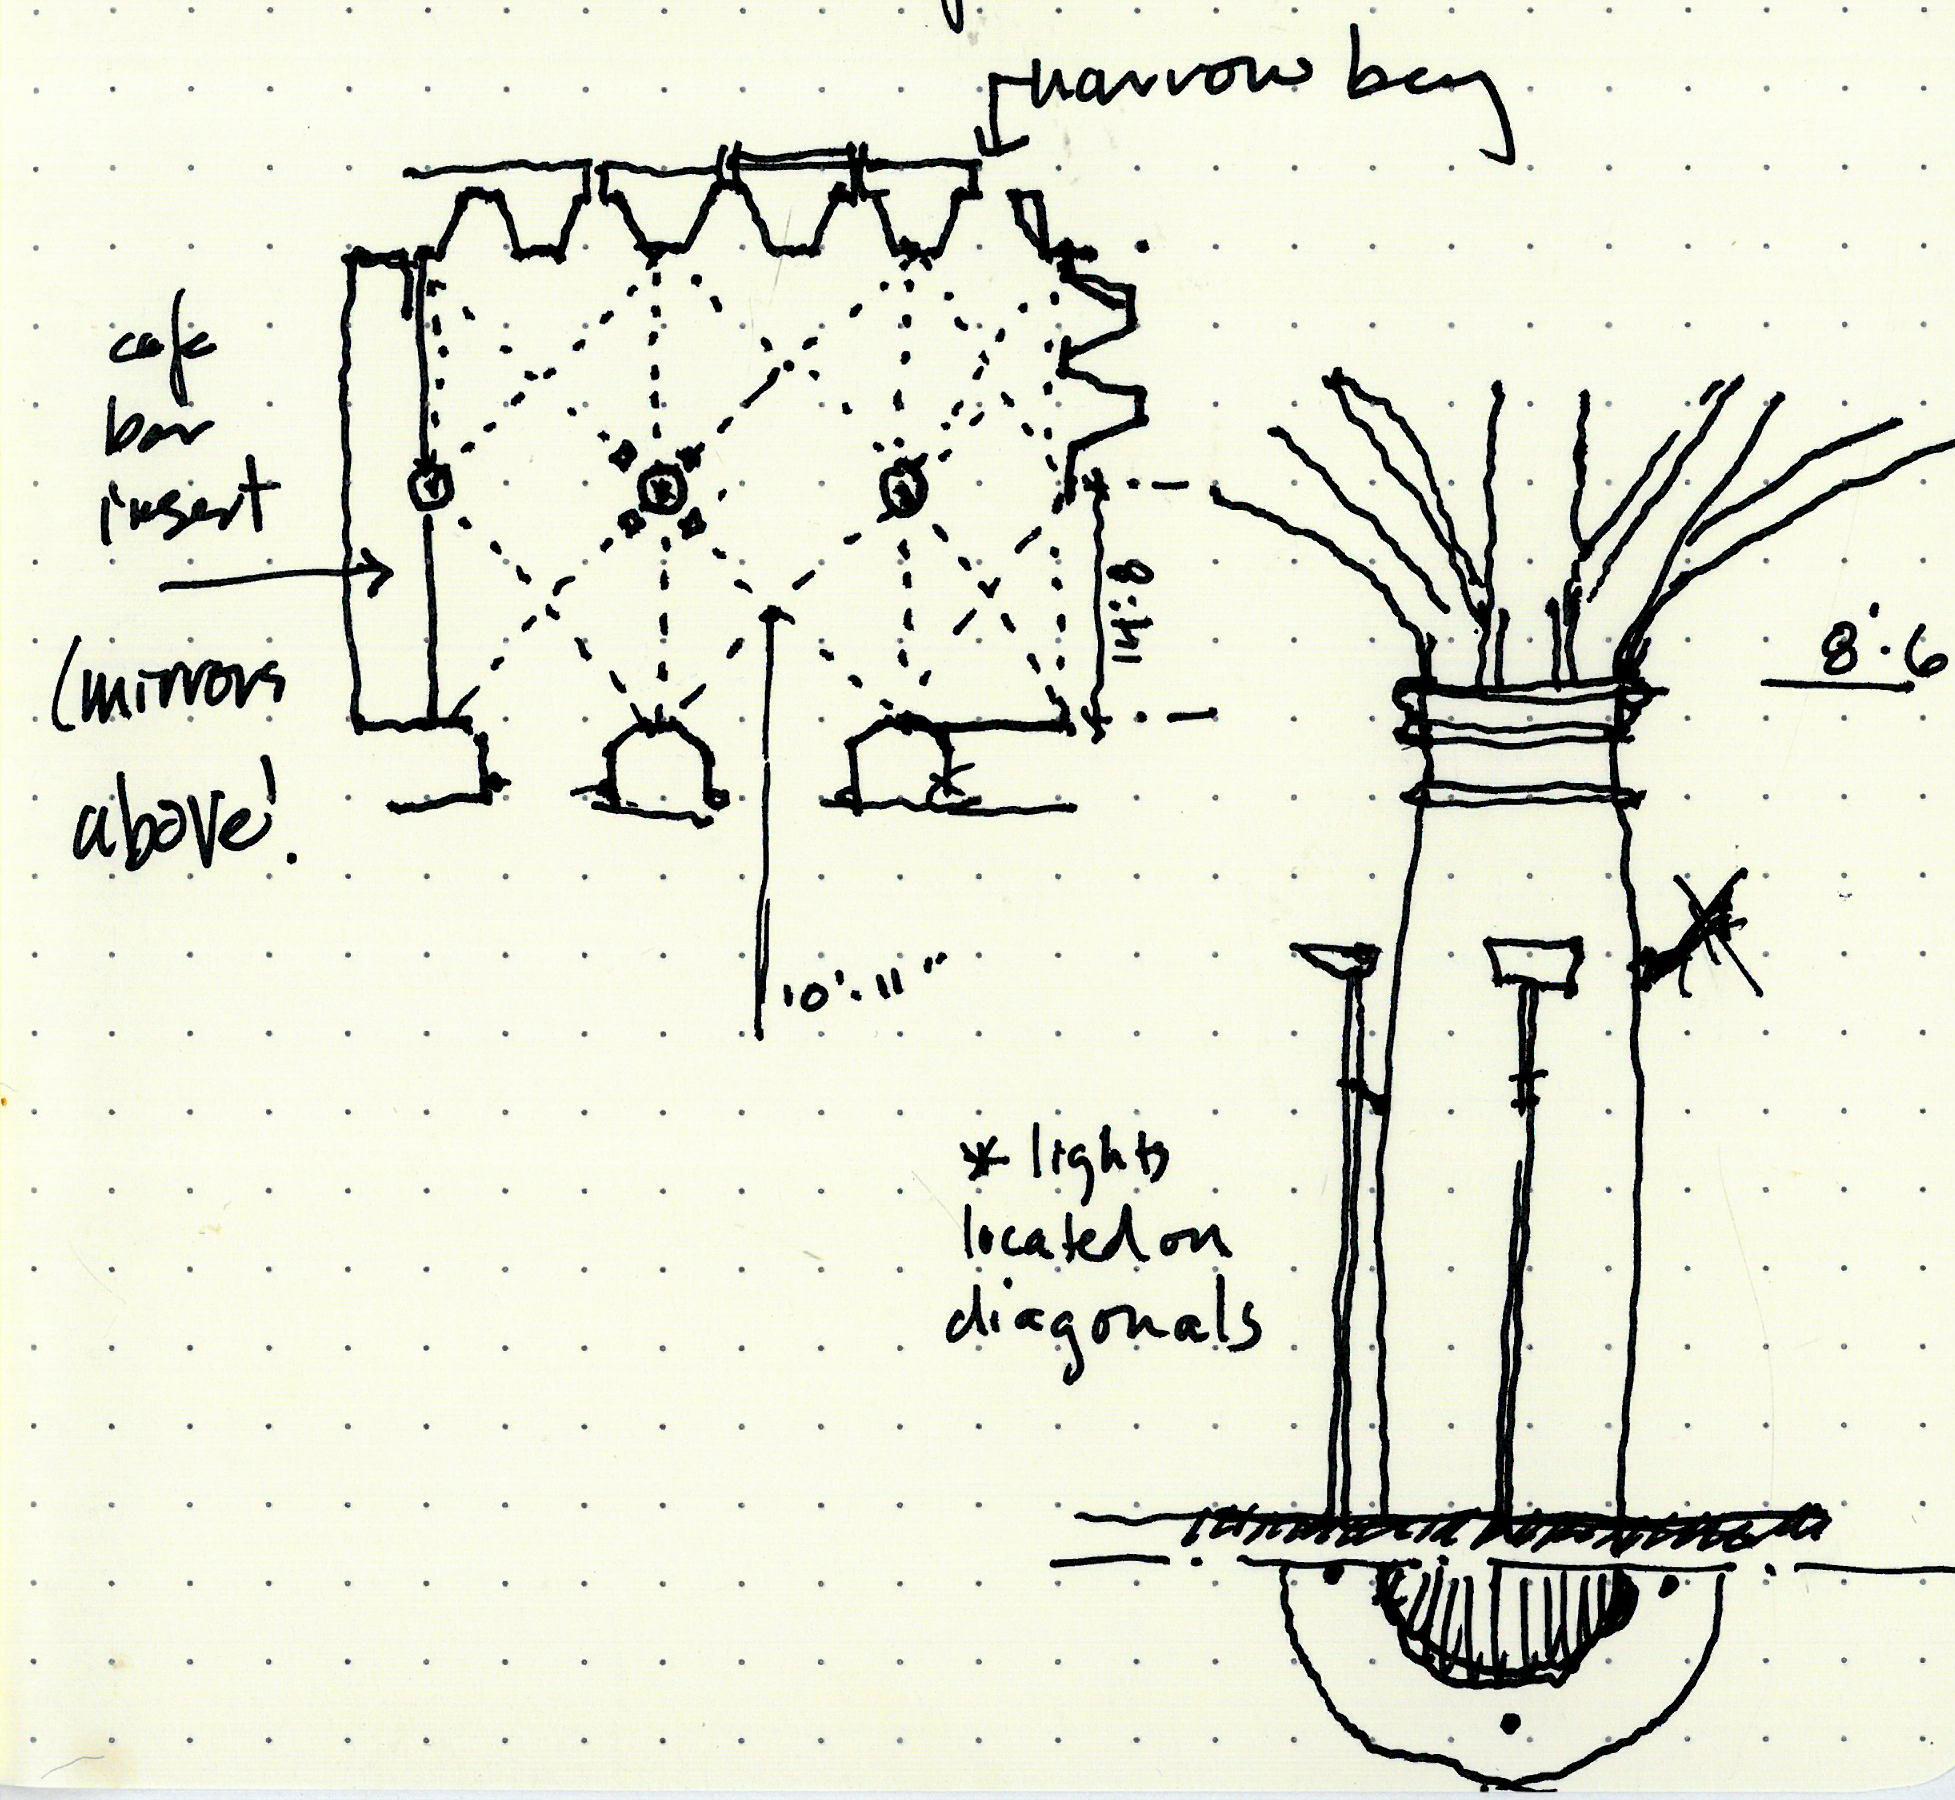 narrow bay
cafe
bar
insert
(mirrors
above!
14'.8
8'.6
10'.11"
* lights
located on
diagonals